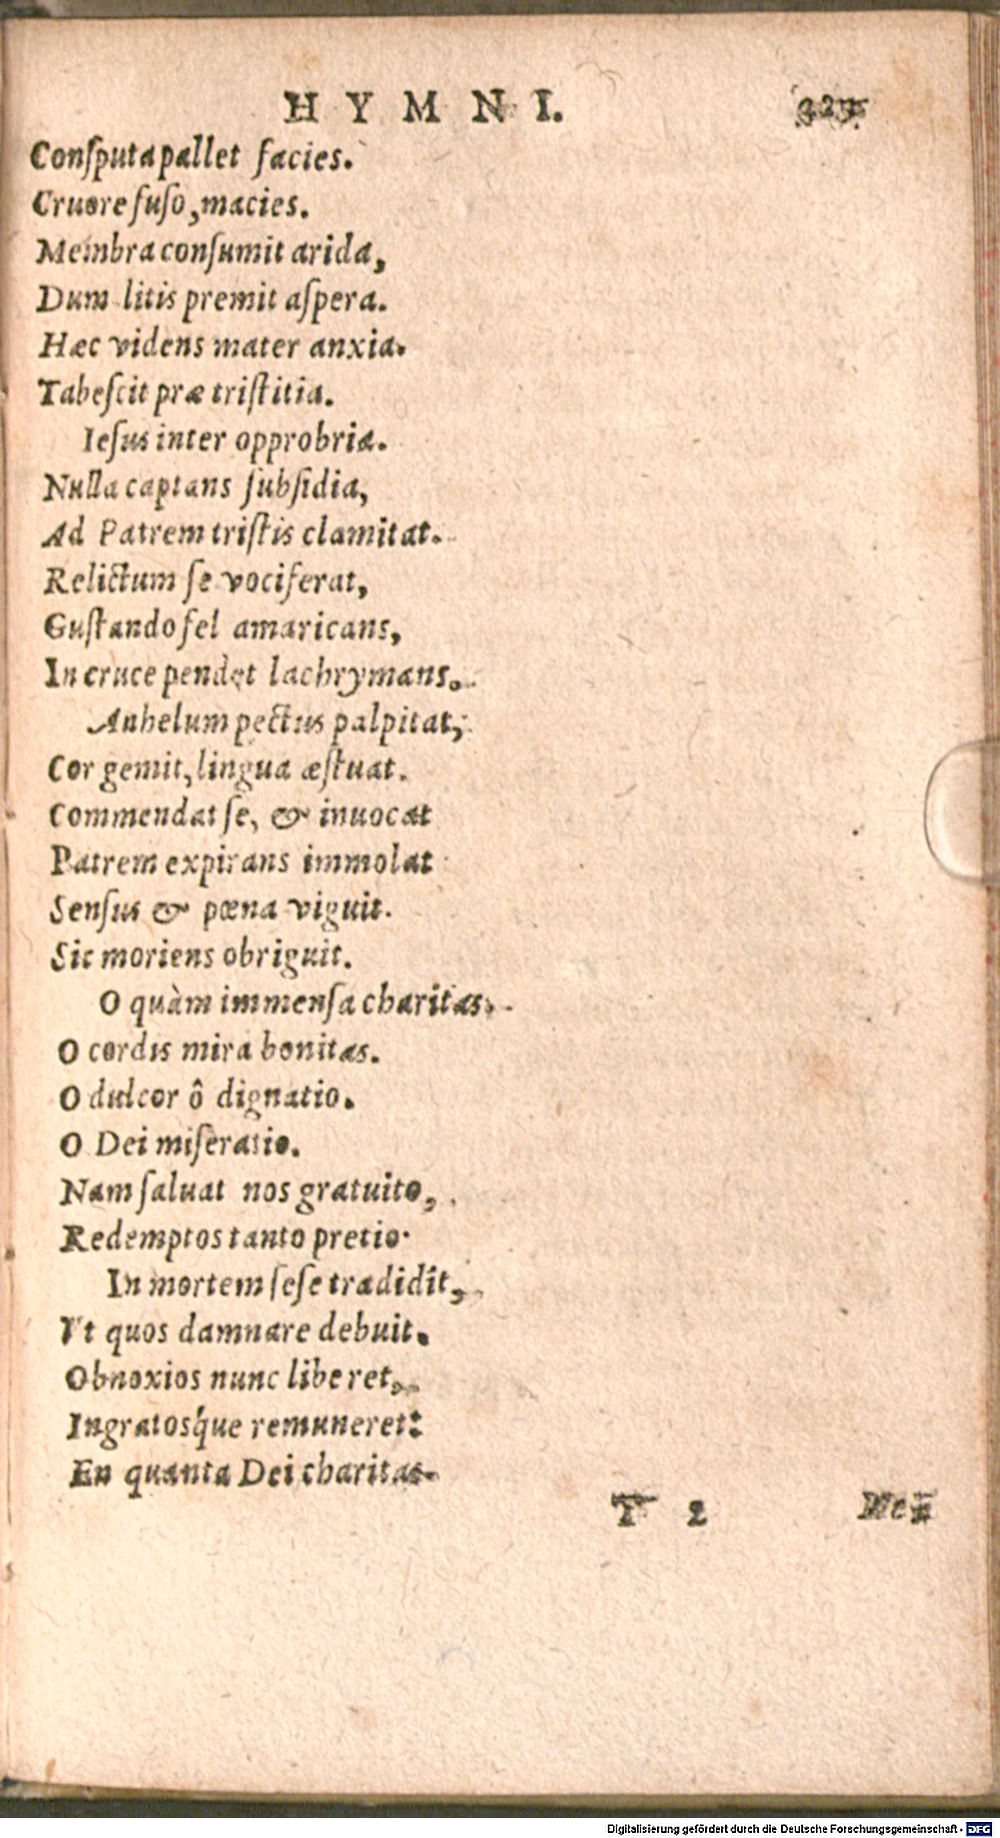 HYMNI.
Conſputa pallet facies.
Cruore fuſo, macies.
Membra conſumit arida,
Dum litis premit aſpera.
Hæc videns mater anxia.
Tabeſcit præ triſtitia.
Ieſus inter opprobria.
Nulla captans ſubſidia,
Ad Patrem triſtis clamitat.
Relictum ſe vociferat,
Guſtando fel amaricans,
In cruce pendet lachrymans.
Anhelum pectus palpitat,
Cor gemit, lingua æſtuat.
Commendat ſe, & inuocat
Patrem expirans immolat
Senſus & pœna viguit.
Sic moriens obriguit.
O quàm immenſa charitas.
O cordis mira bonitas.
O dulcor ô dignatio.
O Dei miſeratio.
Nam ſaluat nos gratuito,
Redemptos tanto pretio.
In mortem ſeſe tradidit,
Vt quos damnare debuit.
Obnoxios nunc liberet,
Ingratosque remuneret:
En quanta Dei charitas.
T 2
Digitalisierung gefördert durch die Deutsche Forschungsgemeinschaft - DFG